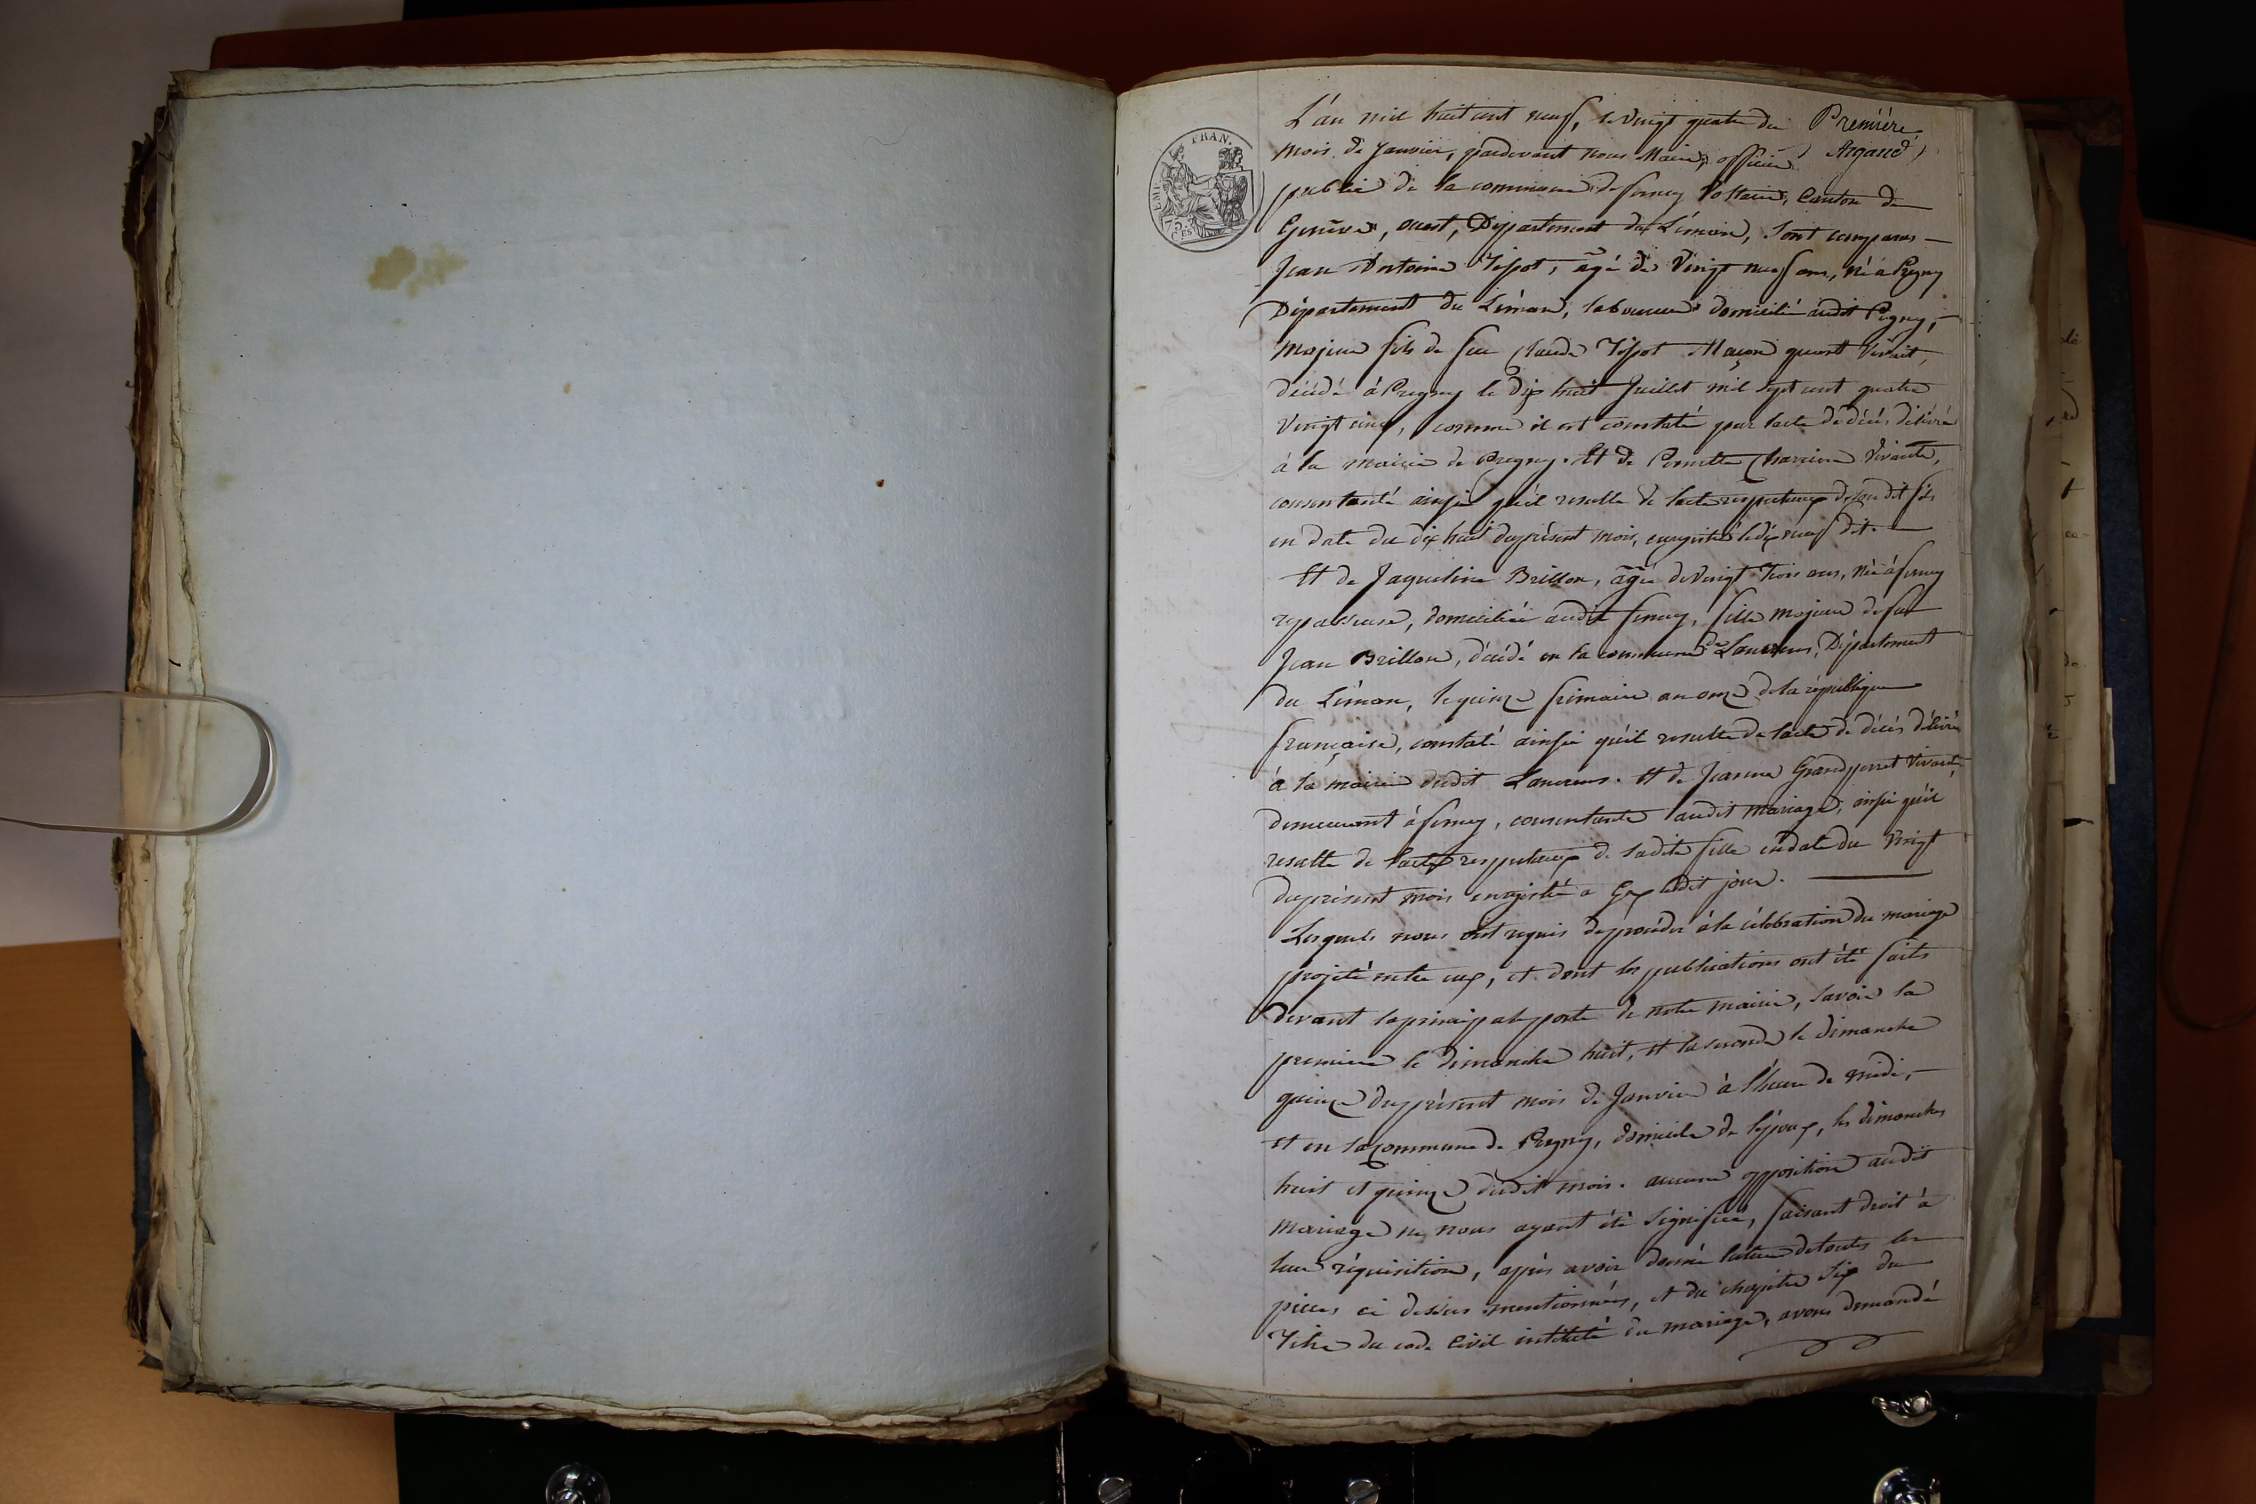 EMP. FRAN.
75 C.ES
L'án mil huit cent neuf, le Vingt quatre du Premiére
mois de Janvier, pardevant nous Maire, officier Argand
public de la commune de ferney Voltaire, Canton de
Genève, ouest, Département du Léman, Sont comparus
Jean Antoine Tissot, âgé de Vingt neuf ans, né à Pregny
Département du Léman, laboureur domicilié audit Pregny,
majeur fils de feu Claude Tissot Maçon quand Vivait,
décédé à Pregny le dix huit Juillet mil sept cent quatre
Vingt cinq, comme il est constaté par l'acte de décès délivré
à la mairie de Pregny. Et de Pernette Vivante,
consentante ainsi qu'il resulte de l'acte respectueux de son dit fils
en date du dix huit du présent mois, enregistré le dix neuf dit.
Et de Jaqueline Brillon, âgée de Vingt Trois ans, née à ferney
repasseuse, domiciliée audit ferney, fille majeure de feu
Jean Brillon, décédé en la commune de Lancrans, Département
du Léman, le quinze frimaire an onze de la république
française, constaté ainsi qu'il resulte de l'acte de décès délivré
à la mairie dudit Lancrans. Et de Jeanne Grandperret Vivante,
demeurant à ferney, consentante audit mariage, ainsi qu'il
resulte de l'acte respectueux de ladite fille en date du Vingt
du présent mois enregistré a Gex ledit jour.
Lesquels nous ont requis de procéder à la célébration du mariage
projeté entre eux, et dont les publications ont été faites
devant la principale porte de notre mairie, savoir la
premiere le dimanche huit, et la seconde le dimanche
quinze du présent mois de Janvier à l'heure de midi,
et en la Commune de Pregny, domicile de l'époux, les dimanches
huit et quinze dudit mois. aucune opposition audit
mariage ne nous ayant été signifiée, faisant droit à
leur réquisition, après avoir donné lecture de toutes les
pieces ci dessus mentionnées, et du chapitre Six du
Titre du code Civil intitulé du mariage, avons demandé